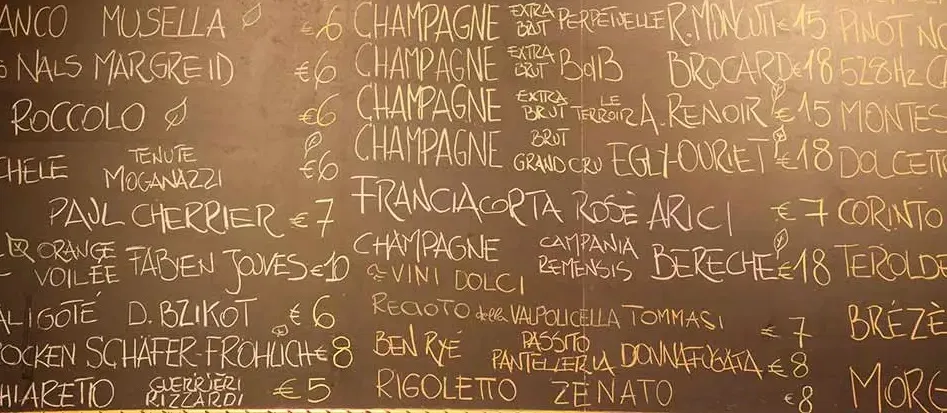 ANCO MUSELLA €6
NALS MARGREID €6
ROCCOLO €6
CHELE TENUTE MOGANAZZI €6
PAUL CHERRIER €7
ORANGE VOILÉE FABIEN JOUVES €10
ALIGOTÉ D. BZIKOT €6
OCKEN SCHÄFER-FROHLICH €8
HIARETTO GUERRIERI RIZZARDI €5
CHAMPAGNE EXTRA BRUT R. MONCUIT €15
CHAMPAGNE EXTRA BRUT BOIB BROCARD €18
CHAMPAGNE EXTRA BRUT LE TERROIR A. RENOIR €15
CHAMPAGNE BRUT GRAND CRU EGLY-OURIET €18
FRANCIACORTA ROSÈ ARICI €7
CHAMPAGNE CAMPANIA REMENSIS BERECHE €18
VINI DOLCI
RECIOTO della VALPOLICELLA TOMMASI €7
BEN RYÉ PASSITO PANTELLERIA DONNAFUGATA €8
RIGOLETTO ZENATO €8
PINOT NO
528Hz C
MONTES
DOLCETT
CORINTO
TEROLDE
BRÉZÈ
MORG